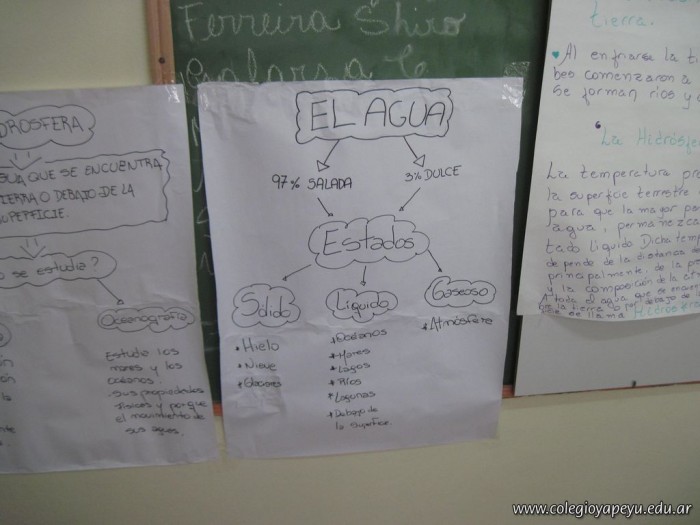 Ferreira Shiro
DROSFERA
QUE SE ENCUENTRA
TIERRA O DEBAJO DE LA
SUPERFICIE.
se estudia?
Oceanografía
Estudia los
mares y los
océanos.
sus propiedades
físicas y porque
el movimiento de
sus aguas.
EL AGUA
97% SALADA
3% DULCE
Estados
Sólido
Líquido
Gaseoso
* Hielo
* Nieve
* Glaciares
* Océanos
* Mares
* Lagos
* Ríos
* Lagunas
* Debajo de
la superficie.
* Atmósfera
tierra.
Al enfriarse la ti
bes comenzaron a
se forman ríos y
La Hidrósfe
La temperatura pro
la superficie terrestre
para que la mayor pa
agua, permanezca
tado líquido Dicha temp
depende de la distancia
principalmente, de la pre
y la composición de la a
A toda el agua que se encuen
la tierra o por debajo de
se llama Hidrósf
www.colegioyapeyu.edu.ar